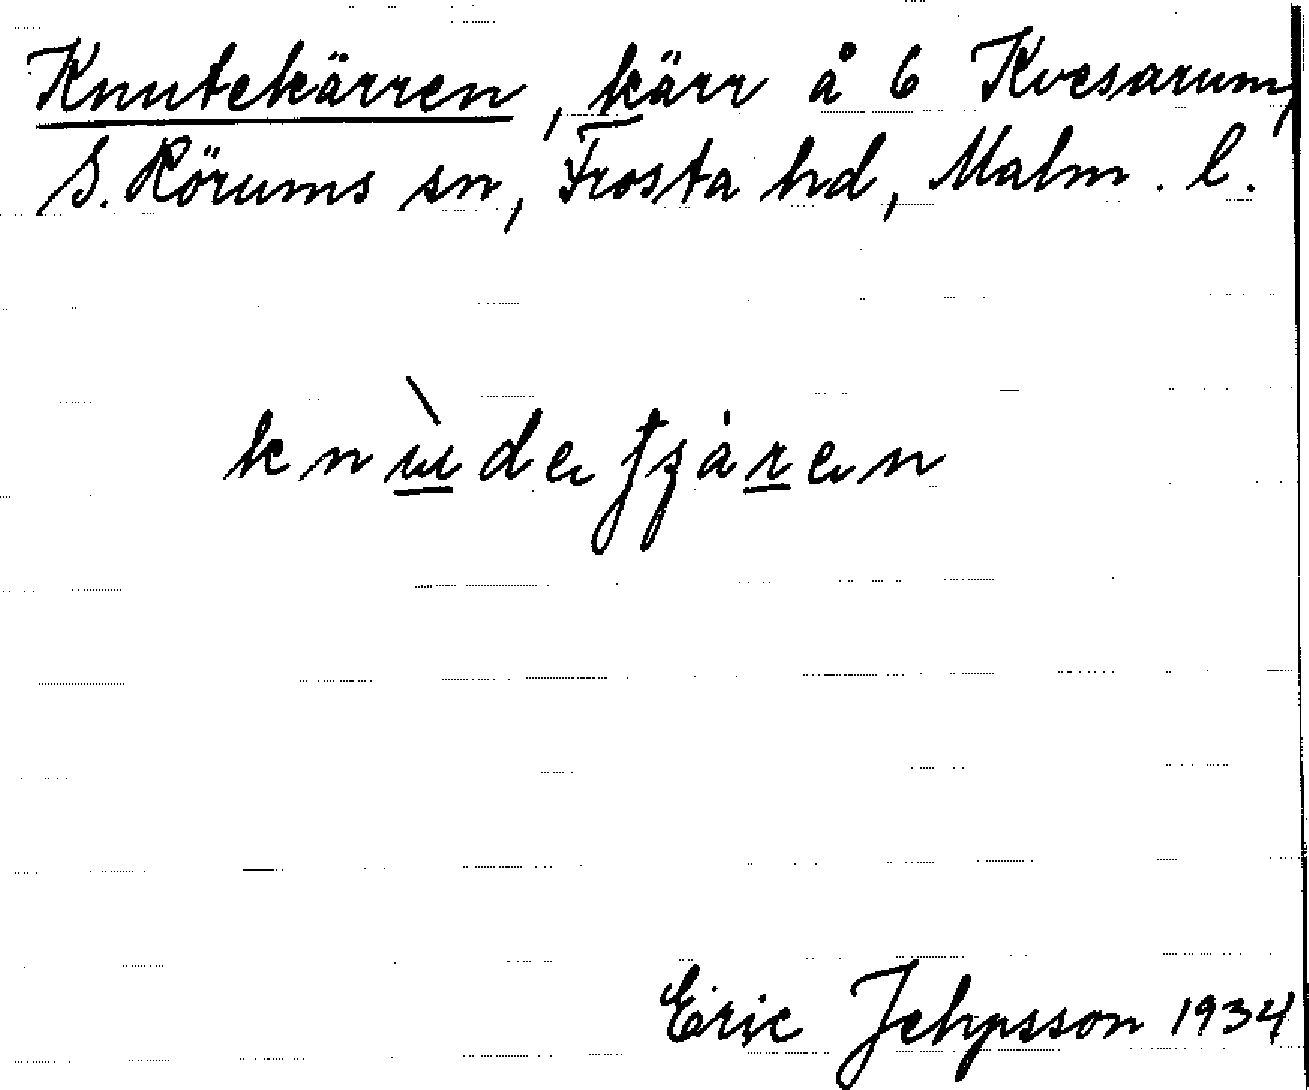 Knutekärren, kärr å 6 Kvesarum,
S. Rörums sn, Frosta hd, Malm. l.
Eric Jehpsson 1934